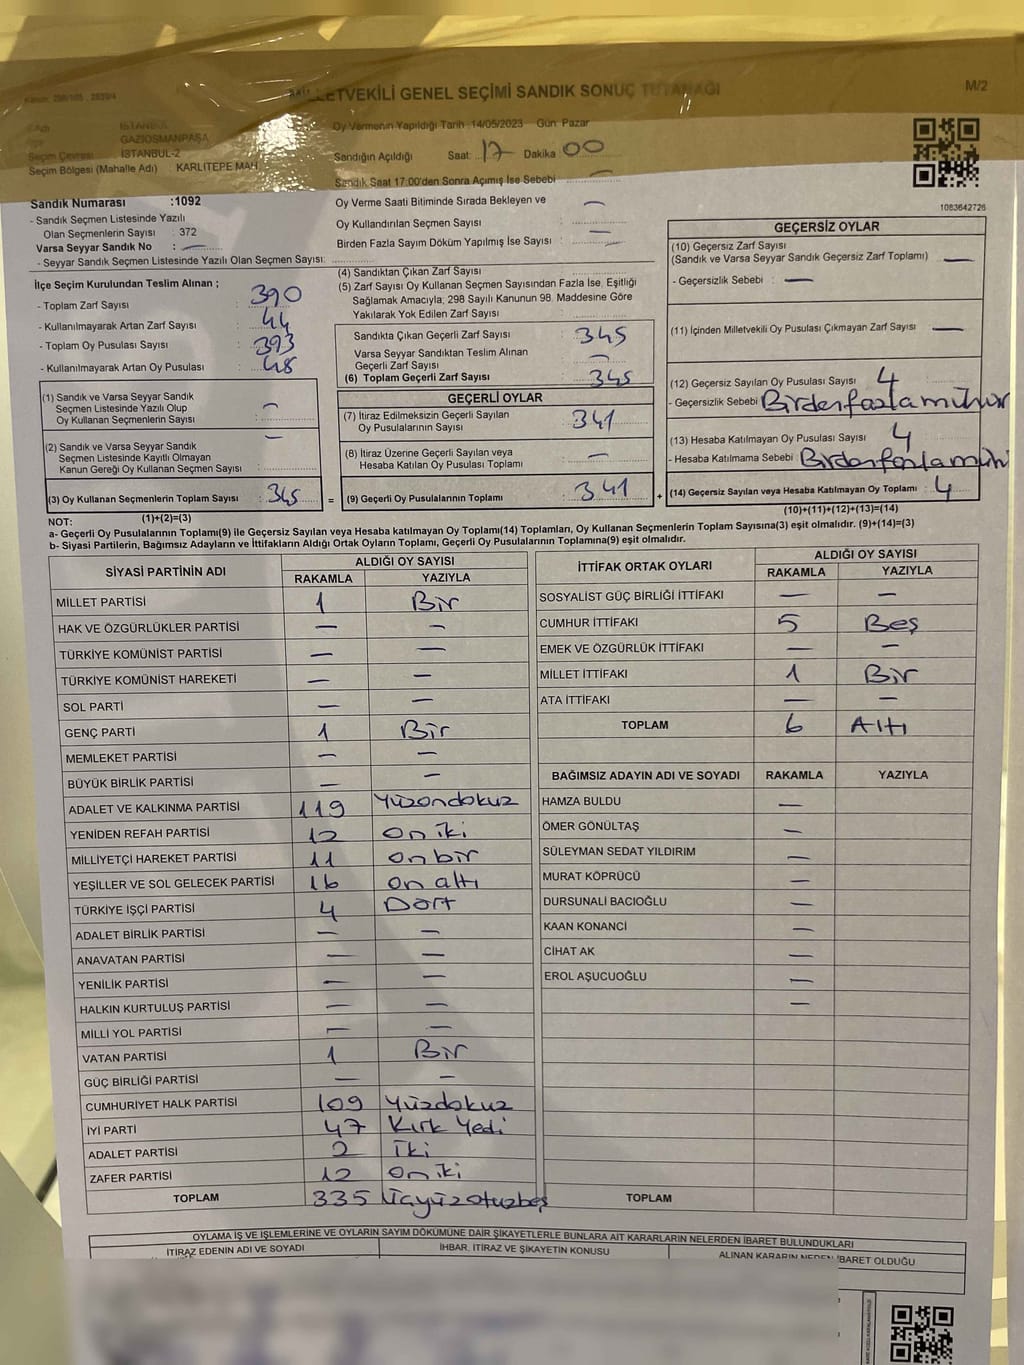 MİLLETVEKİLİ GENEL SEÇİMİ SANDIK SONUÇ TUTANAĞI
M/2
İSTANBUL
GAZİOSMANPAŞA
Seçim Çevresi İSTANBUL-2
Seçim Bölgesi (Mahalle Adı) KARLITEPE MAH.
Oy Vermenin Yapıldığı Tarih :14/05/2023 Gün: Pazar
Sandığın Açıldığı Saat: 17 Dakika 00
Sandık Saat 17:00'den Sonra Açımış İse Sebebi : —
1083642726
Sandık Numarası :1092
- Sandık Seçmen Listesinde Yazılı
Olan Seçmenlerin Sayısı : 372
Varsa Seyyar Sandık No : —
- Seyyar Sandık Seçmen Listesinde Yazılı Olan Seçmen Sayısı:
Oy Verme Saati Bitiminde Sırada Bekleyen ve —
Oy Kullandırılan Seçmen Sayısı :
Birden Fazla Sayım Döküm Yapılmış İse Sayısı : —
İlçe Seçim Kurulundan Teslim Alınan ;
- Toplam Zarf Sayısı : 390
- Kullanılmayarak Artan Zarf Sayısı : 44
- Toplam Oy Pusulası Sayısı : 393
- Kullanılmayarak Artan Oy Pusulası : 48
(1) Sandık ve Varsa Seyyar Sandık
Seçmen Listesinde Yazılı Olup
Oy Kullanan Seçmenlerin Sayısı : —
(2) Sandık ve Varsa Seyyar Sandık —
Seçmen Listesinde Kayıtlı Olmayan
Kanun Gereği Oy Kullanan Seçmen Sayısı :
(3) Oy Kullanan Seçmenlerin Toplam Sayısı : 345 =
(1)+(2)=(3)
(4) Sandıktan Çıkan Zarf Sayısı :
(5) Zarf Sayısı Oy Kullanan Seçmen Sayısından Fazla İse, Eşitliği
Sağlamak Amacıyla; 298 Sayılı Kanunun 98. Maddesine Göre
Yakılarak Yok Edilen Zarf Sayısı :
Sandıkta Çıkan Geçerli Zarf Sayısı : 345
Varsa Seyyar Sandıktan Teslim Alınan
Geçerli Zarf Sayısı : —
(6) Toplam Geçerli Zarf Sayısı : 345
GEÇERLİ OYLAR
(7) İtiraz Edilmeksizin Geçerli Sayılan
Oy Pusulalarının Sayısı : 341
(8) İtiraz Üzerine Geçerli Sayılan veya
Hesaba Katılan Oy Pusulası Toplamı : —
(9) Geçerli Oy Pusulalarının Toplamı : 341 +
GEÇERSİZ OYLAR
(10) Geçersiz Zarf Sayısı
(Sandık ve Varsa Seyyar Sandık Geçersiz Zarf Toplamı) : —
- Geçersizlik Sebebi : —
(11) İçinden Milletvekili Oy Pusulası Çıkmayan Zarf Sayısı : —
(12) Geçersiz Sayılan Oy Pusulası Sayısı : 4
- Geçersizlik Sebebi : Birden fazla mühür
(13) Hesaba Katılmayan Oy Pusulası Sayısı : 4
- Hesaba Katılmama Sebebi : Birden fazla mühü
(14) Geçersiz Sayılan veya Hesaba Katılmayan Oy Toplamı : 4
(10)+(11)+(12)+(13)=(14)
NOT:
a- Geçerli Oy Pusulalarının Toplamı(9) ile Geçersiz Sayılan veya Hesaba katılmayan Oy Toplamı(14) Toplamları, Oy Kullanan Seçmenlerin Toplam Sayısına(3) eşit olmalıdır. (9)+(14)=(3)
b- Siyasi Partilerin, Bağımsız Adayların ve İttifakların Aldığı Ortak Oyların Toplamı, Geçerli Oy Pusulalarının Toplamına(9) eşit olmalıdır.
SİYASİ PARTİNİN ADI ALDIĞI OY SAYISI
RAKAMLA YAZIYLA
MİLLET PARTİSİ 1 Bir
HAK VE ÖZGÜRLÜKLER PARTİSİ — —
TÜRKİYE KOMÜNİST PARTİSİ — —
TÜRKİYE KOMÜNİST HAREKETİ — —
SOL PARTİ — —
GENÇ PARTİ 1 Bir
MEMLEKET PARTİSİ — —
BÜYÜK BİRLİK PARTİSİ — —
ADALET VE KALKINMA PARTİSİ 119 Yüzondokuz
YENİDEN REFAH PARTİSİ 12 on iki
MİLLİYETÇİ HAREKET PARTİSİ 11 on bir
YEŞİLLER VE SOL GELECEK PARTİSİ 16 on altı
TÜRKİYE İŞÇİ PARTİSİ 4 Dört
ADALET BİRLİK PARTİSİ — —
ANAVATAN PARTİSİ — —
YENİLİK PARTİSİ — —
HALKIN KURTULUŞ PARTİSİ — —
MİLLİ YOL PARTİSİ — —
VATAN PARTİSİ 1 Bir
GÜÇ BİRLİĞİ PARTİSİ — —
CUMHURİYET HALK PARTİSİ 109 Yüzdokuz
İYİ PARTİ 47 Kırk Yedi
ADALET PARTİSİ 2 İki
ZAFER PARTİSİ 12 on iki
TOPLAM 335 Üçyüzotuzbeş
İTTİFAK ORTAK OYLARI ALDIĞI OY SAYISI
RAKAMLA YAZIYLA
SOSYALİST GÜÇ BİRLİĞİ İTTİFAKI — —
CUMHUR İTTİFAKI 5 Beş
EMEK VE ÖZGÜRLÜK İTTİFAKI — —
MİLLET İTTİFAKI 1 Bir
ATA İTTİFAKI — —
TOPLAM 6 Altı
BAĞIMSIZ ADAYIN ADI VE SOYADI RAKAMLA YAZIYLA
HAMZA BULDU —
ÖMER GÖNÜLTAŞ —
SÜLEYMAN SEDAT YILDIRIM —
MURAT KÖPRÜCÜ —
DURSUNALİ BACIOĞLU —
KAAN KONANCİ —
CİHAT AK —
EROL AŞUCUOĞLU —
—
TOPLAM
OYLAMA İŞ VE İŞLEMLERİNE VE OYLARIN SAYIM DÖKÜMÜNE DAİR ŞİKAYETLERLE BUNLARA AİT KARARLARIN NELERDEN İBARET BULUNDUKLARI
İTİRAZ EDENİN ADI VE SOYADI İHBAR, İTİRAZ VE ŞİKAYETİN KONUSU ALINAN KARARIN NEDEN İBARET OLDUĞU